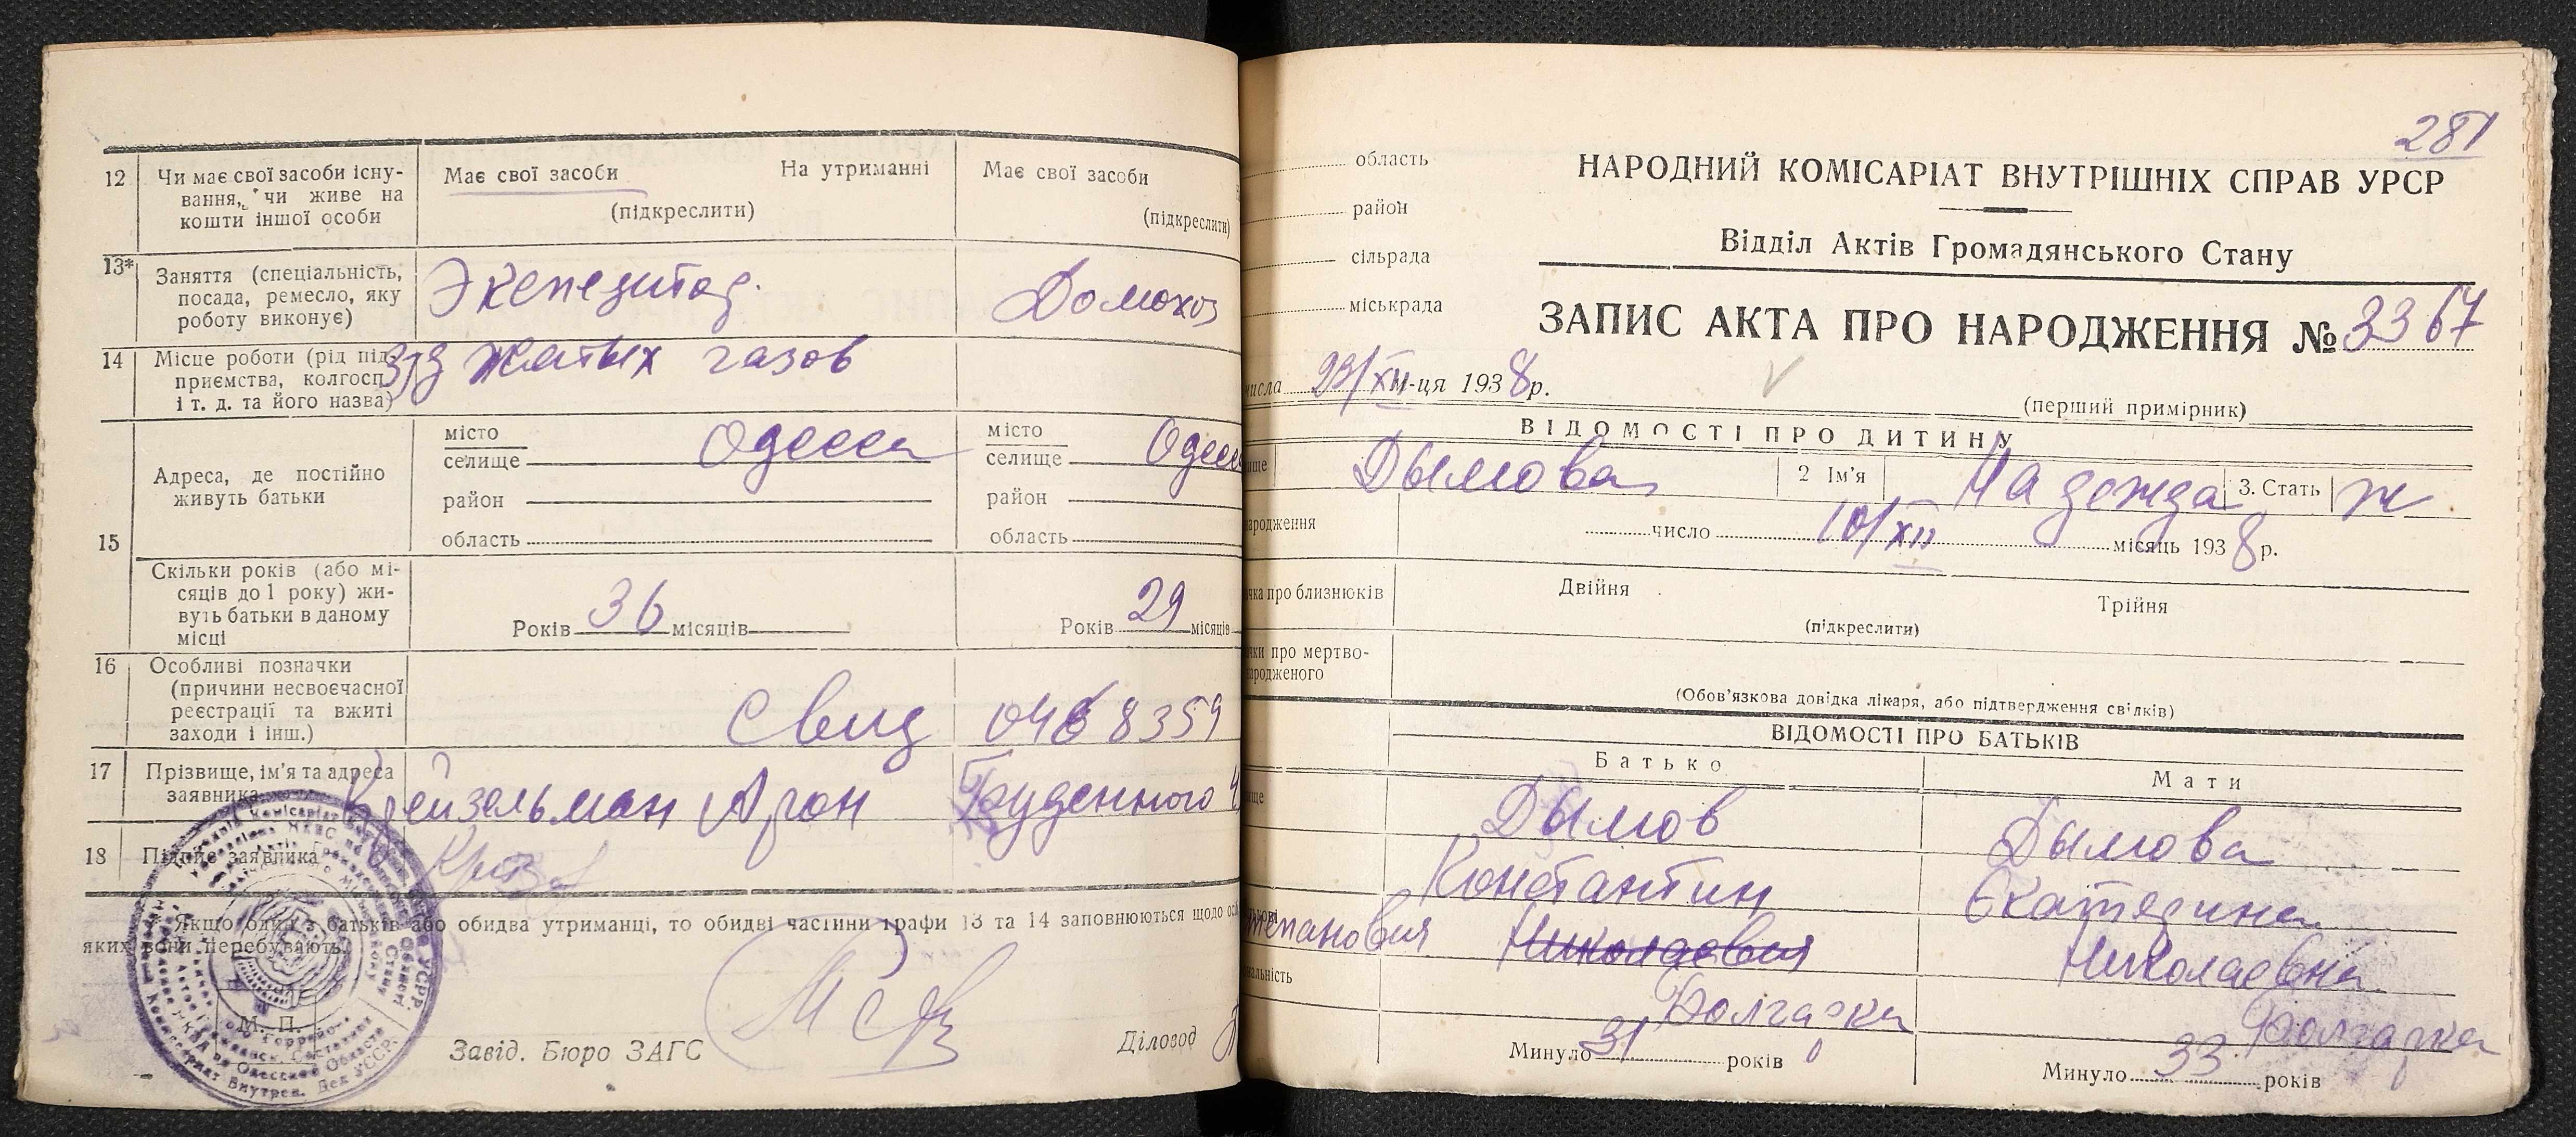 12 Чи має свої засоби існу-
вання, чи живе на
кошти іншої особи
Має свої засоби На утриманні
(підкреслити)
Має свої засоби
(підкреслити)
13* Заняття (спеціальність,
посада, ремесло, яку
роботу виконує)
Экспедитор.
Домохоз
14 Місце роботи (рід під
приємства, колгосп
і т. д. та його назва)
жатых газов
15
Адреса, де постійно
живуть батьки
місто
селище Одесса
район
область
місто
селище Одесс
район
область
Скільки років (або мі-
сяців до 1 року) жи-
вуть батьки в даному
місці
Років 36 місяців
Років 29 місяців
16 Особливі позначки
(причини несвоєчасної
реєстрації та вжиті
заходи і інш.)
Свид 8359
17 Прізвище, ім'я та адреса
заявника
Крейзельман Арон Буденного
18 Підпис заявника
Якщо один з батьків або обидва утриманці, то обидві частини графи 13 та 14 заповнюються щодо
яких вони перебувають.
М. П.
Завід. Бюро ЗАГС
Діловод
281
область
район
сільрада
міськрада
НАРОДНИЙ КОМІСАРІАТ ВНУТРІШНІХ СПРАВ УРСР
Відділ Актів Громадянського Стану
ЗАПИС АКТА ПРО НАРОДЖЕННЯ № 3367
числа 23/XII м-ця 1938р.
(перший примірник)
ВІДОМОСТІ ПРО ДИТИНУ
ище Дымова 2 Ім'я Надежда 3. Стать ж
народження число 10/XII місяць 1938р.
чка про близнюків Двійня Трійня
(підкреслити)
чки про мертво-
народженого
(Обов'язкова довідка лікаря, або підтвердження свідків)
ВІДОМОСТІ ПРО БАТЬКІВ
Батько Мати
ище Дымов Дымова
Константин Екатерина
тепанович Николаевич Николаевна
альність Болгарка Болгарка
Минуло 31 років Минуло 33 років